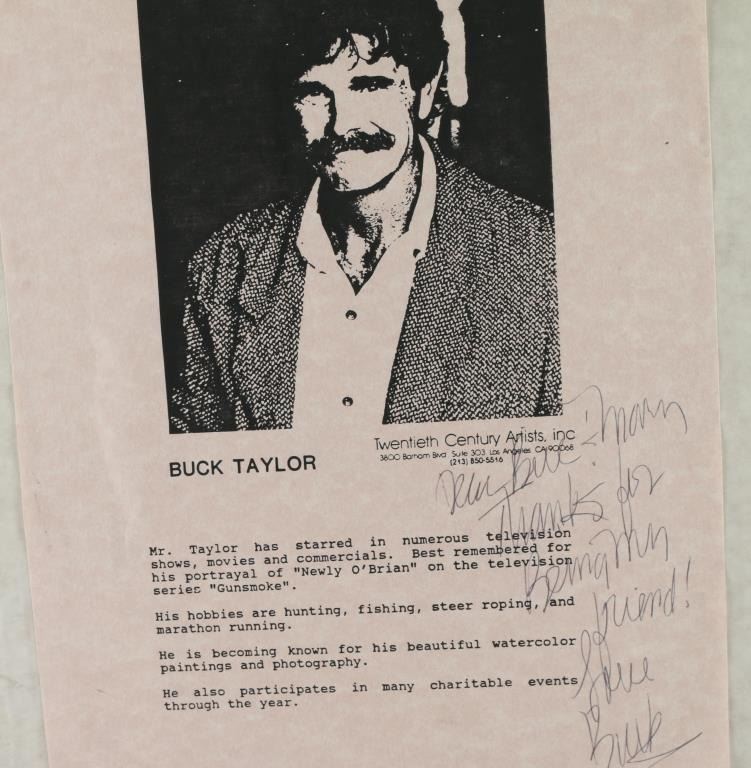 BUCK TAYLOR
Twentieth Century Artists, inc
3800 Barham Blvd Suite 303 Los Angeles CA 90068
(213) 850-5516
Mr. Taylor has starred in numerous television
shows, movies and commercials. Best remembered for
his portrayal of "Newly O'Brian" on the television
series "Gunsmoke".
His hobbies are hunting, fishing, steer roping, and
marathon running.
He is becoming known for his beautiful watercolor
paintings and photography.
He also participates in many charitable events
through the year.
Dear Bill & Mary
Thanks for
Being My
friend!
Love
Buck